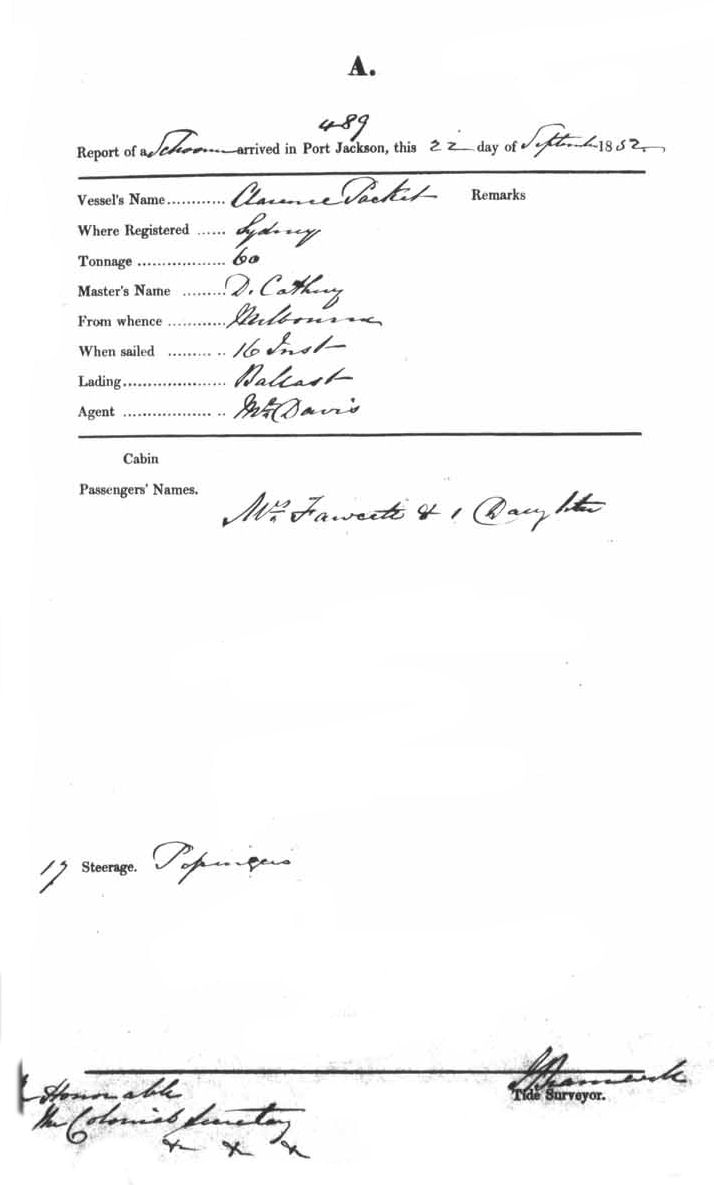 A.
489
Report of a Schooner arrived in Port Jackson, this 22 day of September 1852
Vessel's Name............ Clarence Packet Remarks
Where Registered ...... Sydney
Tonnage .................. 60
Master's Name ......... D.
From whence ............ Melbourne
When sailed ......... .. 16 Inst
Lading..................... Ballast
Agent .................. .. Mr Davis
Cabin
Passengers' Names.
Mrs Fawcett & 1 Daughter
17 Steerage.
Honorable
The Colonial Secretary
& & &
Tide Surveyor.